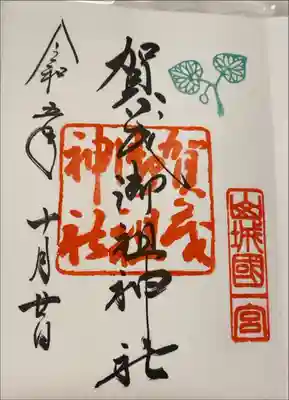 山城國一宮
賀茂御祖神社
賀茂御祖神社
令和五年十月廿日